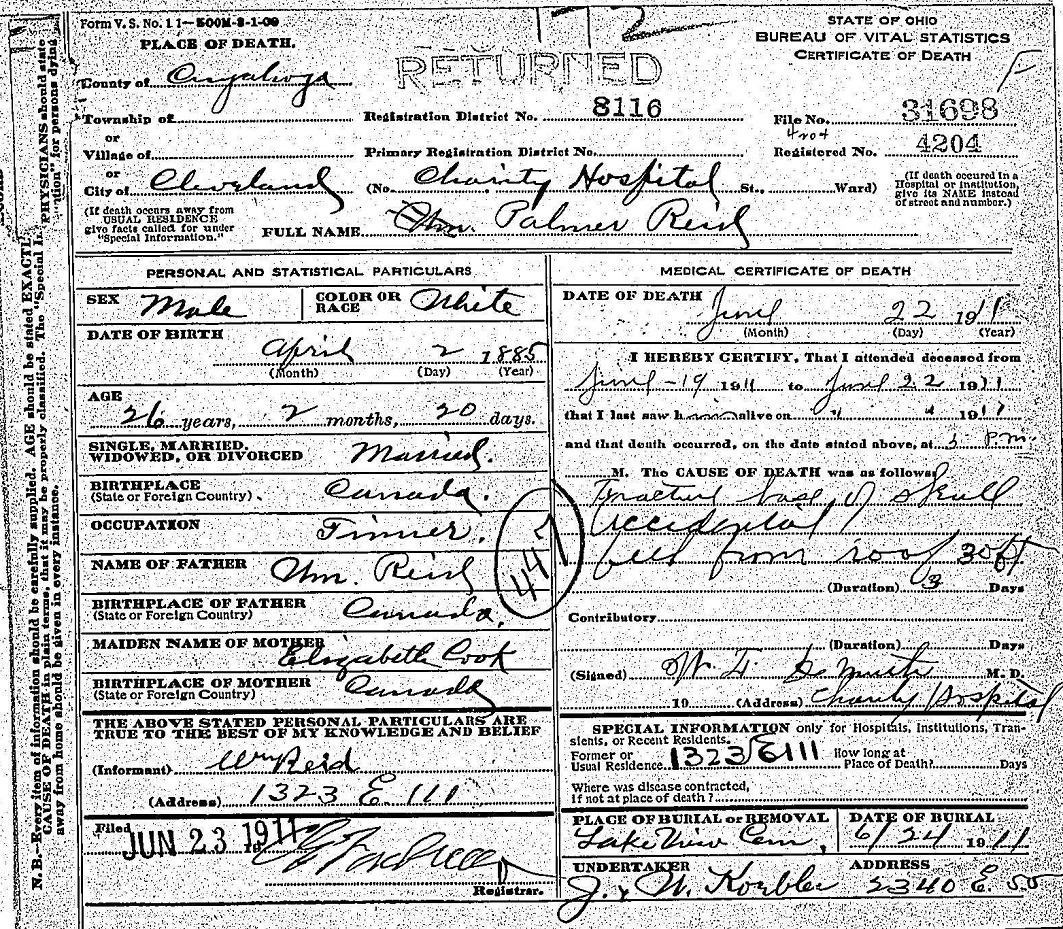 Form V. S. No. 11—500M-8-1-09
172
PLACE OF DEATH.
RETURNED
STATE OF OHIO
BUREAU OF VITAL STATISTICS
CERTIFICATE OF DEATH
County of Cuyahoga
Township of
Registration District No. 8116
File No. 31698
or
Village of
Primary Registration District No.
Registered No. 4204
or
City of Cleveland
(No. Charity Hospital St., Ward)
(If death occured in a Hospital or institution, give its NAME instead of street and number.)
(If death occurs away from USUAL RESIDENCE give facts called for under "Special Information.")
FULL NAME Wm. Palmer Reid
PERSONAL AND STATISTICAL PARTICULARS
SEX Male
COLOR OR RACE White
DATE OF BIRTH
April 2 1885
(Month) (Day) (Year)
AGE
26 years, 2 months, 20 days.
SINGLE, MARRIED, WIDOWED, OR DIVORCED Married.
BIRTHPLACE (State or Foreign Country) Canada.
OCCUPATION Tinner.
NAME OF FATHER Wm. Reid
BIRTHPLACE OF FATHER (State or Foreign Country) Canada,
MAIDEN NAME OF MOTHER Elizabeth Cook
BIRTHPLACE OF MOTHER (State or Foreign Country) Canada
THE ABOVE STATED PERSONAL PARTICULARS ARE TRUE TO THE BEST OF MY KNOWLEDGE AND BELIEF
(Informant) Wm Reid
(Address) 1323 E. 111
Filed JUN 23 1911
Registrar.
447
MEDICAL CERTIFICATE OF DEATH
DATE OF DEATH
June 22 1911
(Month) (Day) (Year)
I HEREBY CERTIFY, That I attended deceased from
June-19 1911 to June 22 1911
that I last saw him alive on " " 1911
and that death occurred, on the date stated above, at 3 P.m.
M. The CAUSE OF DEATH was as follows
Fracture base of skull
Accidental
fell from roof 30 ft
(Duration) 3 Days
Contributory
(Duration) Days
(Signed) M. D.
19 (Address) Charity Hospital
SPECIAL INFORMATION only for Hospitals, Institutions, Transients, or Recent Residents.
Former or Usual Residence 1323 E 111
How long at Place of Death? Days
Where was disease contracted, if not at place of death?
PLACE OF BURIAL or REMOVAL
Lake View Cem,
DATE OF BURIAL
6/24 1911
UNDERTAKER
J. & W. Koebler
ADDRESS
2340 E. 55
N. B.—Every item of information should be carefully supplied. AGE should be stated EXACTL PHYSICIANS should state
CAUSE OF DEATH in plain terms, that it may be properly classified. The "Special I tion" for persons dying
away from home should be given in every instance.